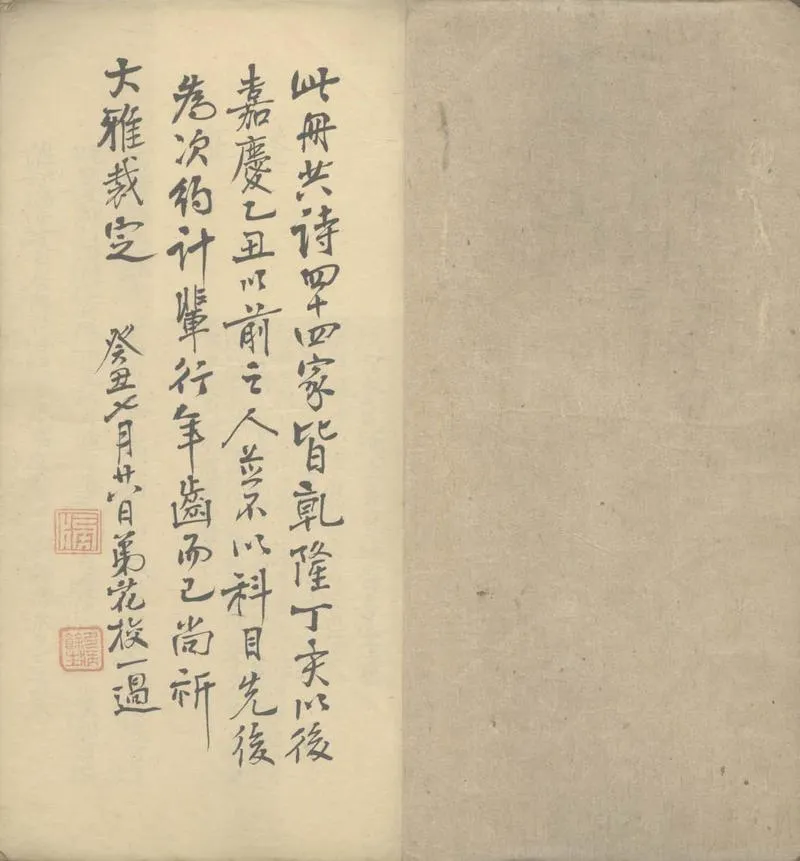 此冊共詩四十四家皆乾隆丁亥以後
嘉慶乙丑以前之人並不以科目先後
為次約計輩行年齒而已尚祈
大雅裁定
癸丑七月廿八日弟花校一過